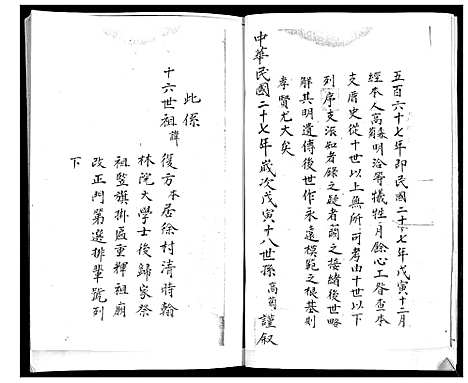 五百六十七年即民國二十七年戊寅十二月
經本人高 明洽等犧牲月餘心工督查本
支曆史從十世以上無所可考由十世以下
列序支派知者錄之疑者闕之接緒後世略
解具明遺傳後世作永遠模範之根基則
孝賢尤大矣
中華民國二十七年歲次戊寅十八世孫 高 謹叙
此係
十六世祖諱
復方本居徐村清時翰
林院大學士後歸家祭
祖竪旗掛匾重釋祖廟
改正門第選排輩號列
下